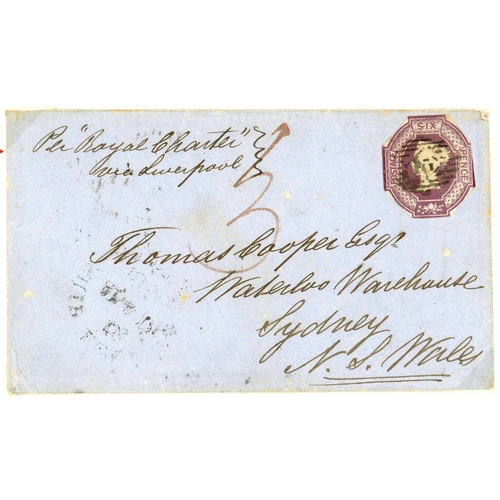 Per "Royal Charter"
via Liverpool
3
SIX
PENCE
POSTAGE
Thomas Cooper Esqr
Waterloo Warehouse
Sydney
N. S. Wales